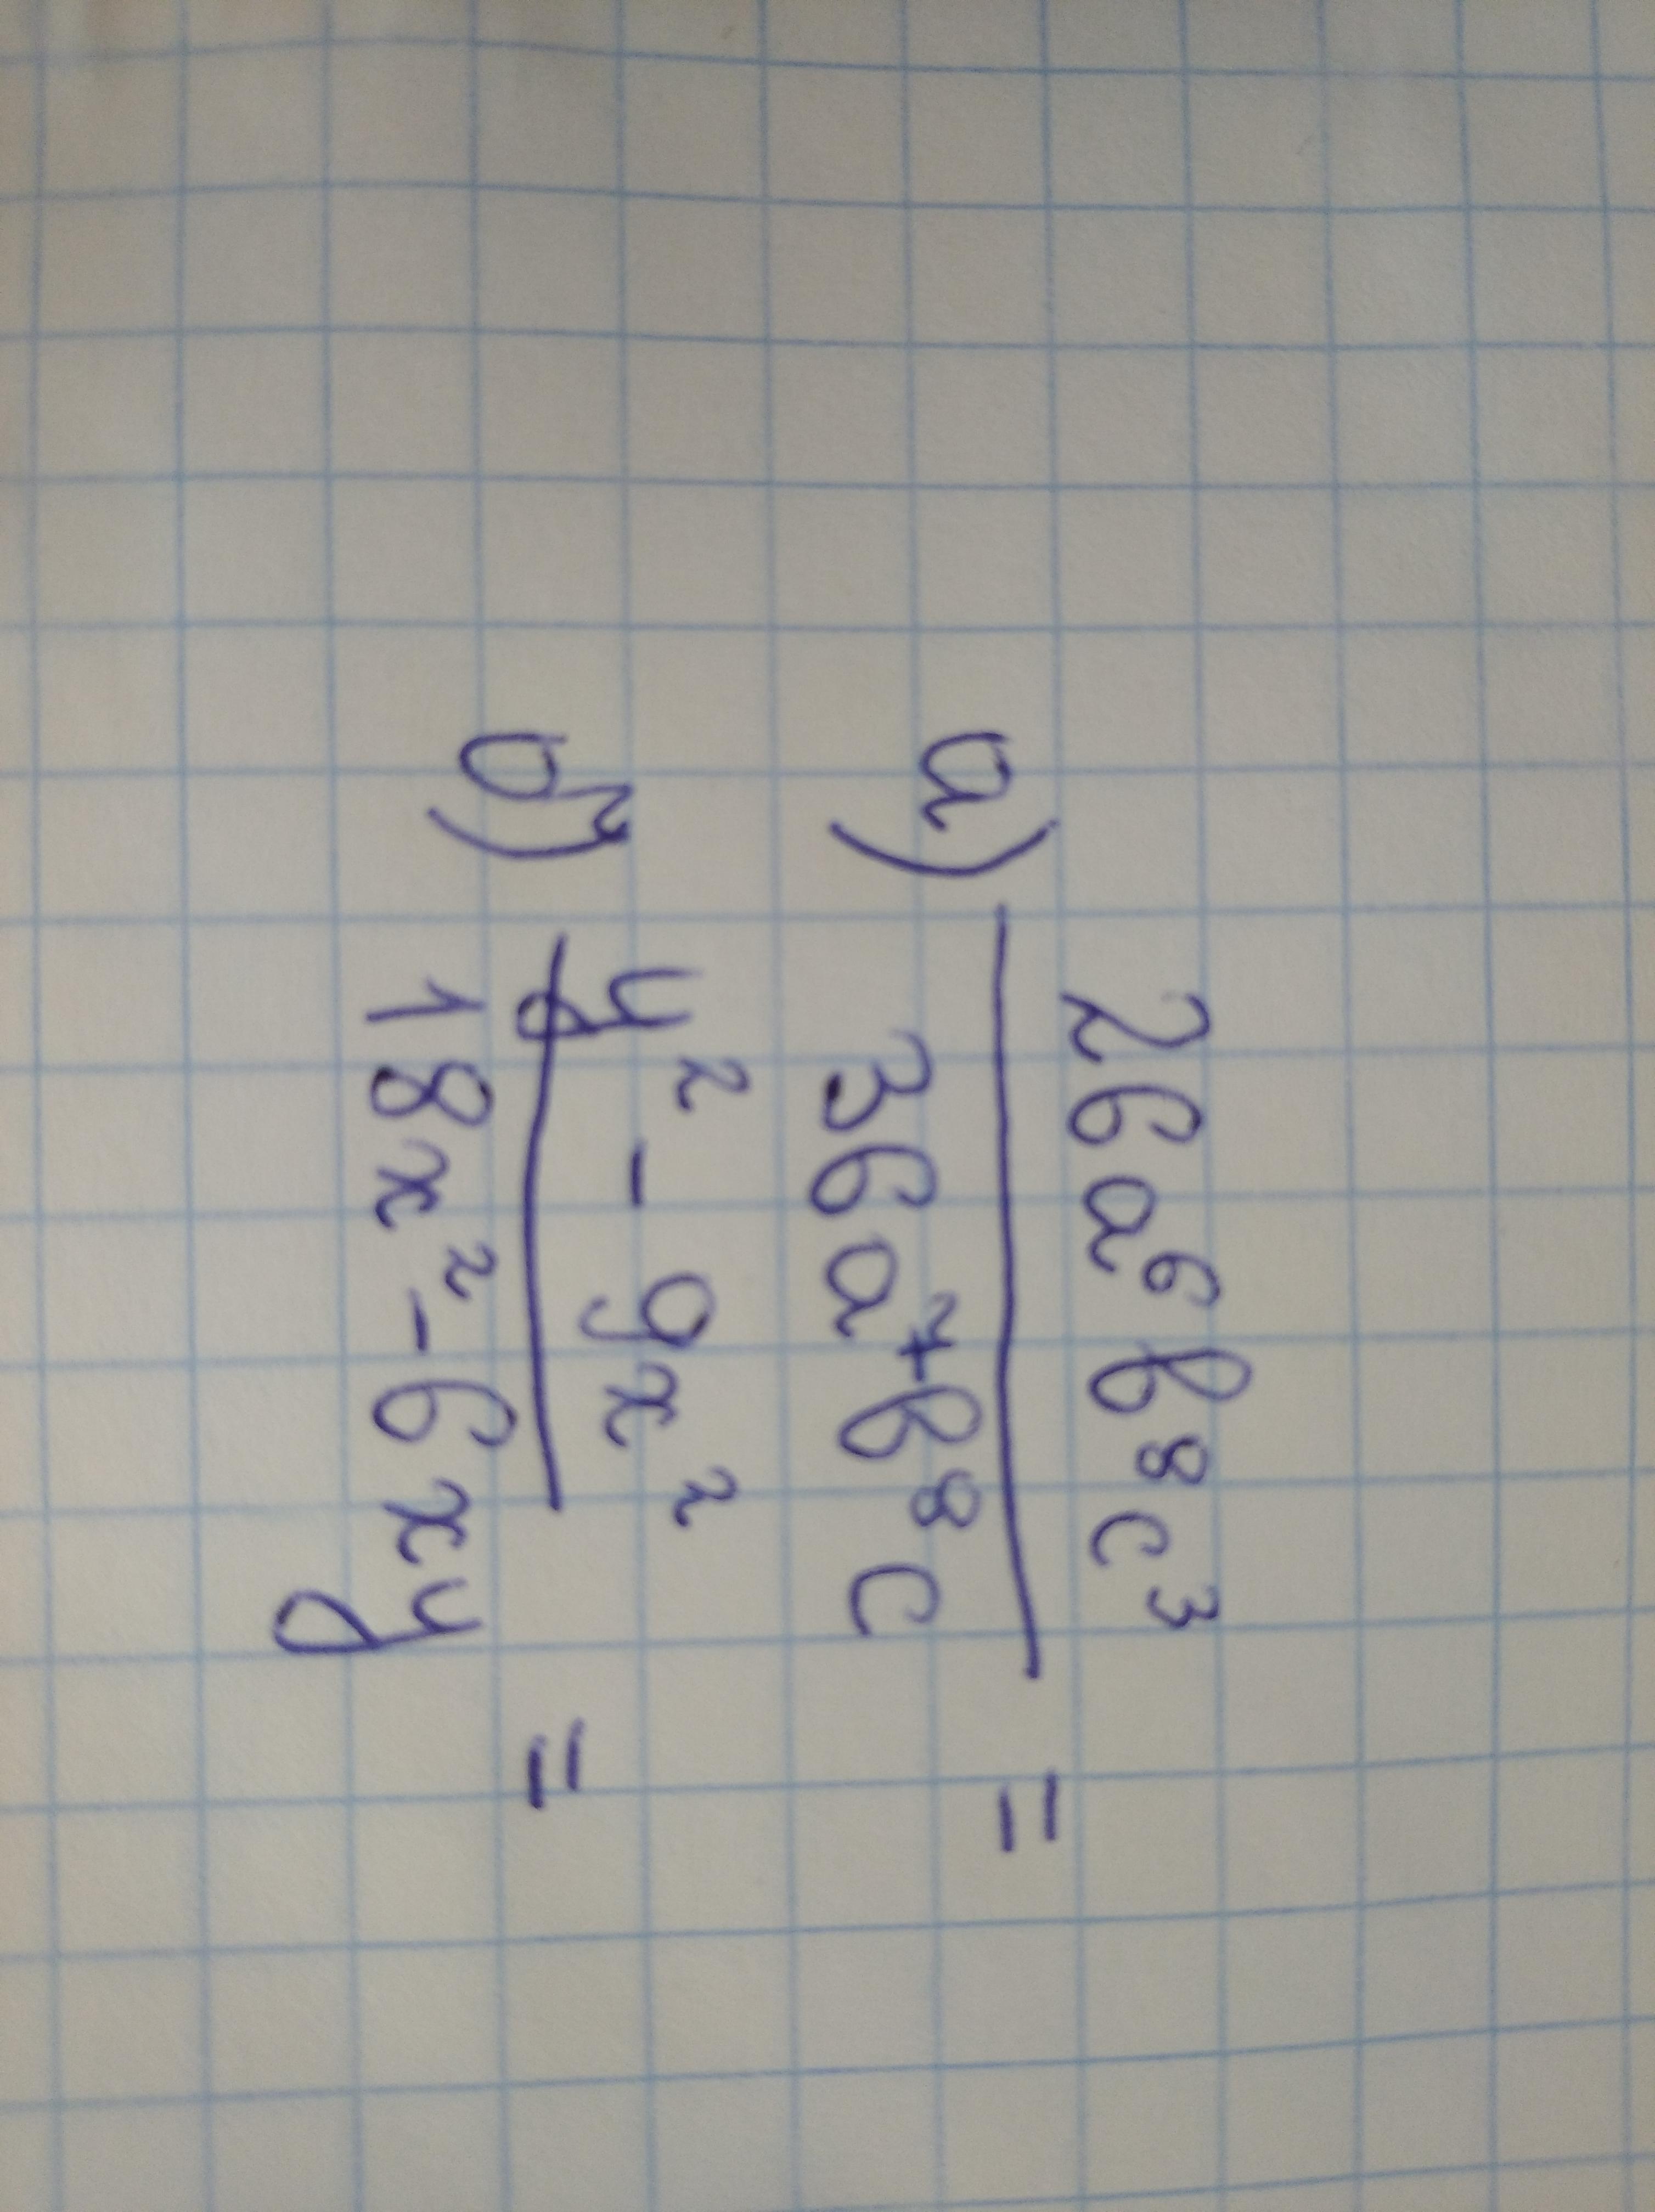 а) 26a⁶b⁸c³
36a⁷b⁸c =
б) y² - 9x²
18x² - 6xy =